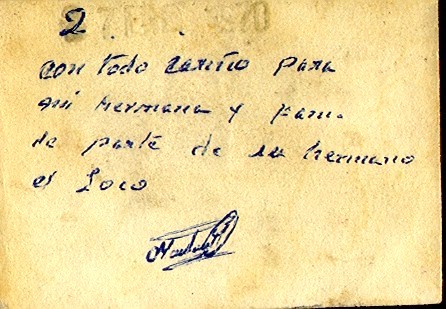 2
con todo cariño para
mi hermana y fam.
de parte de su hermano
el Loco